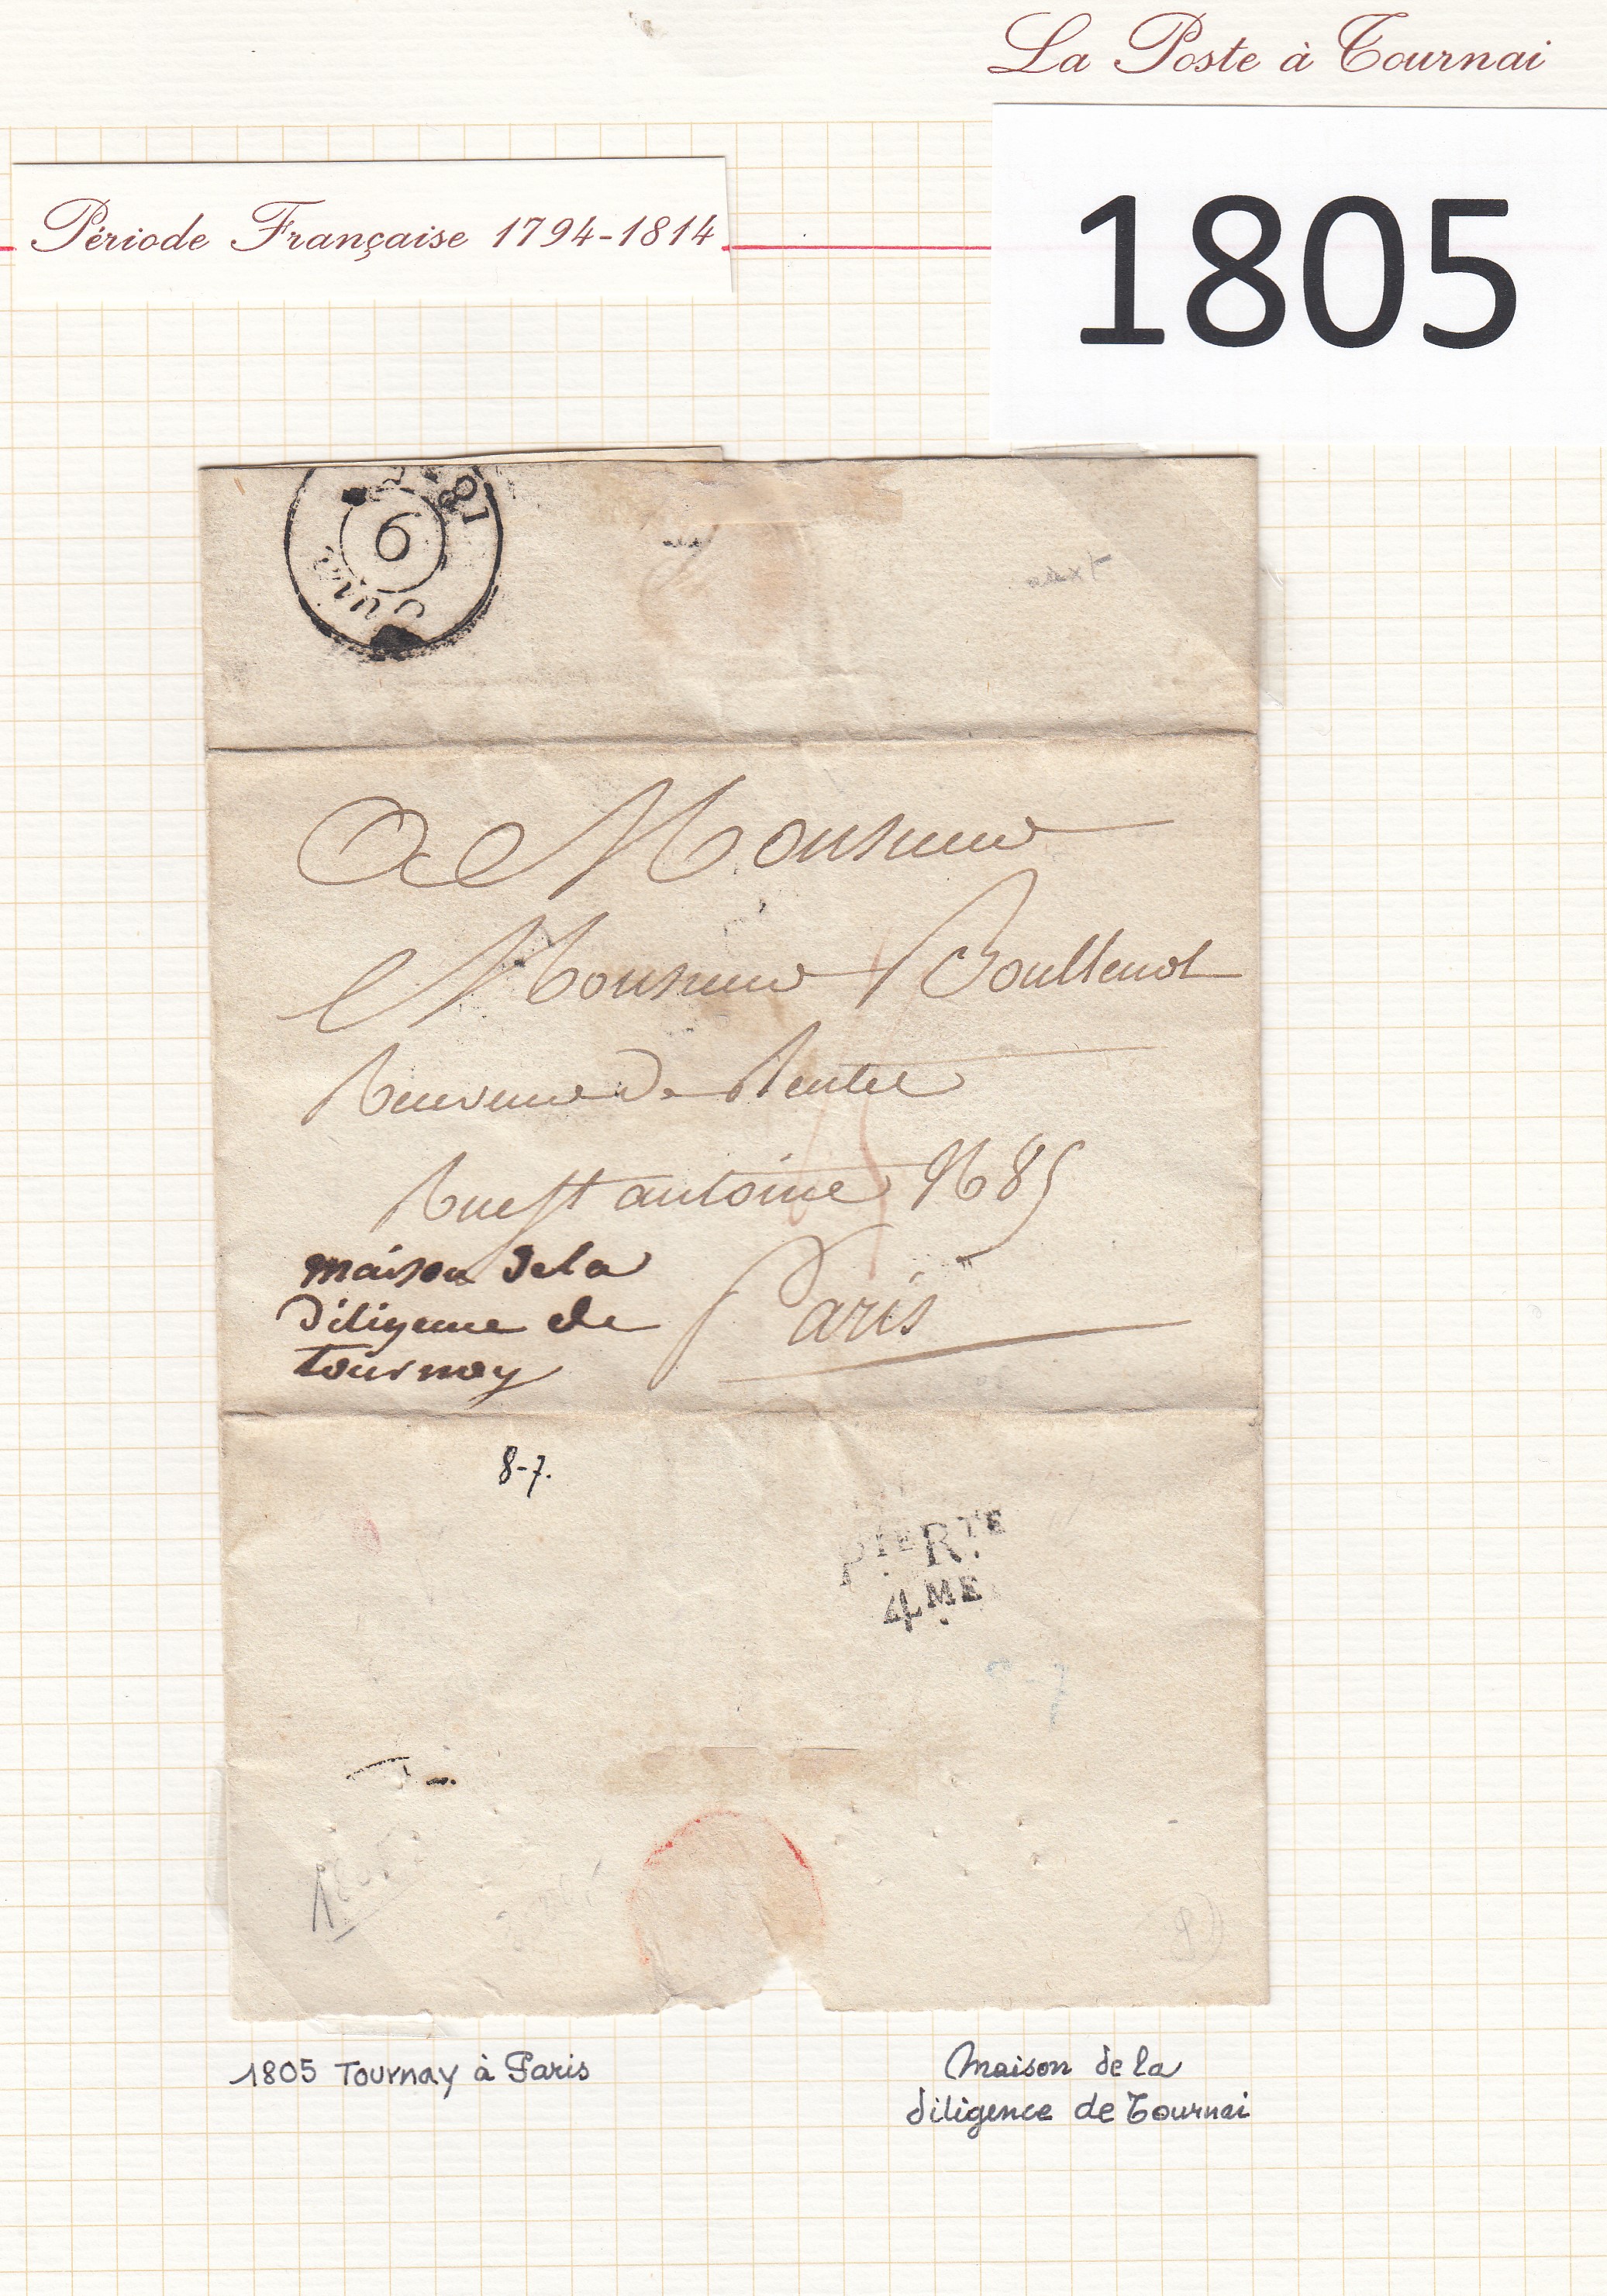 La Poste à Tournai
Période Française 1794-1814
1805
6
A Monsieur
Monsieur Boullenot
Receveur de Rentes
Rue St antoine N 85
Paris
maison de la
Diligence de
Tournay
8-7.
PIERTE
4ME
1805 Tournay à Paris
Maison de la
diligence de Tournai